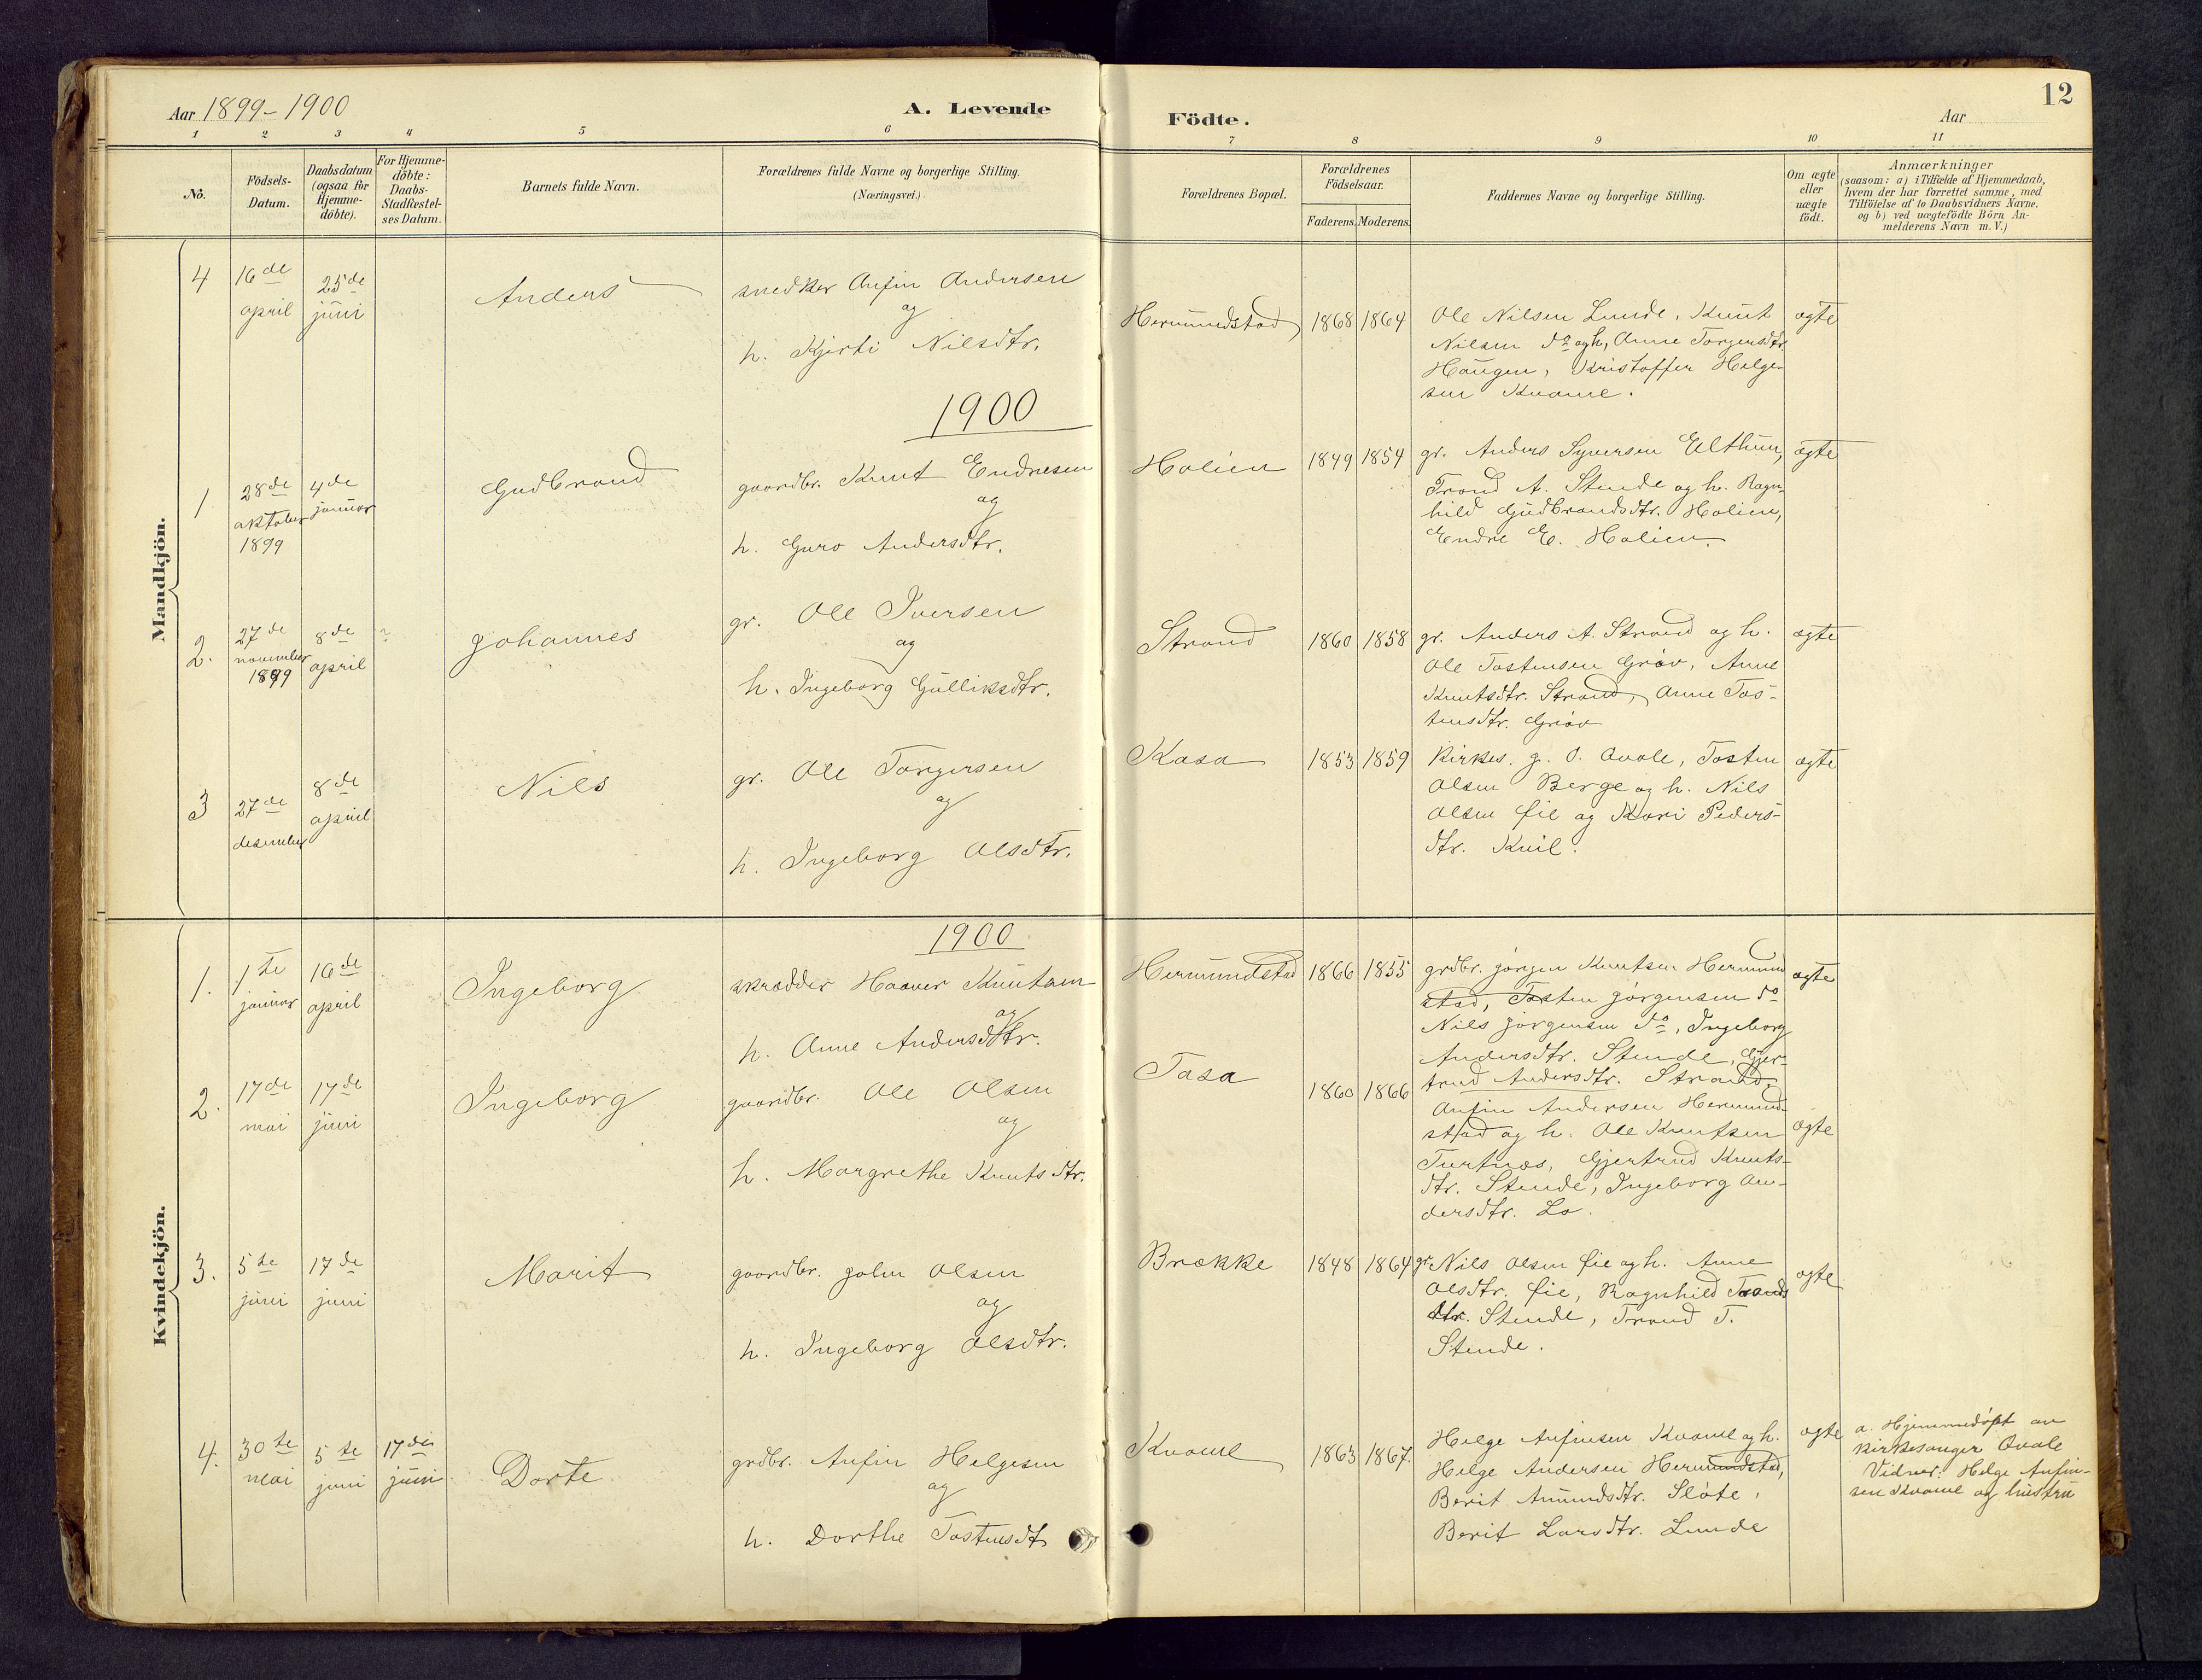 Aar 1899-1900
A. Levende
Födte.
Aar
12
1 2 3 4 5 6 7 8 9 10 11
No.
Födsels-
Datum.
Daabsdatum
(ogsaa for
Hjemme-
döbte).
For Hjemme-
döbte:
Daabs-
Stadfæstel-
ses Datum.
Barnets fulde Navn.
Forældrenes fulde Navne og borgerlige Stilling.
(Næringsvei.)
Forældrenes Bopæl.
Forældrenes
Födselsaar.
Faderens. Moderens.
Faddernes Navne og borgerlige Stilling.
Om ægte
eller
uægte
födt.
Anmærkninger
(saasom: a) i Tilfælde af Hjemmedaab,
hvem der har forrettet samme, med
Tilföielse af to Daabsvidners Navne,
og b) ved uægtefödte Börn An-
melderens Navn m. V.)
Mandkjön.
4
16de
april
25de
juni
Anders
snedker Anfin Andersen
og
h. Kjersti Nilsdtr.
Hermundstad
1868 1864
Ole Nilsen Lunde, Knut
Nilsen do og h, Anne Torgersdtr
Haugen, Kristoffer Helge-
sen Kvame.
ægte
1900
1
28de
oktober
1899
4de
januar
Gudbrand
gaardbr. Knut Endresen
og
h. Guro Andersdtr.
Holien
1849 1854
gr. Anders Syversen Elthun,
Trond A. Stende og h. Ragn-
hild Gudbrandsdtr. Holien,
Endre E. Holien.
ægte
2.
27de
november
1899
8de
april
Johannes
gr. Ole Iversen
og
h. Ingeborg Gulliksdtr.
Strand
1860 1858
gr. Anders A. Strand og h.
Ole Tostensen Grøv, Anne
Knutsdtr. Strand, Anne Tos-
tensdtr. Grøv
ægte
3
27de
desember
8de
april
Nils
gr. Ole Torgersen
og
h. Ingeborg Olsdtr.
Kasa
1853 1859
kirkes. g. O. Qvale, Tosten
Olsen Berge og h. Nils
Olsen Øie og Kari Peders-
dtr. Kvil.
ægte
Kvindekjön.
1900
1.
1te
januar
16de
april
Ingeborg
skrædder Haaver Knutsen
og
h. Anne Andersdtr.
Hermundstad
1866 1855
grdbr. Jørgen Knutsen Hermund
stad, Tosten Jørgensen do
Nils Jørgensen do, Ingeborg
Andersdtr. Stende, Gjer-
trud Andersdtr. Strand,
ægte
2.
17de
mai
17de
juni
Ingeborg
gaardbr. Ole Olsen
og
h. Margrethe Knutsdtr.
Tasa
1860 1866
Anfin Andersen Hermund-
stad og h. Ole Knutsen
Turtnes, Gjertrud Knuts-
dtr. Stende, Ingeborg An-
dersdtr. Lo.
ægte
3.
5te
juni
17de
juni
Marit
gaardbr. John Olsen
og
h. Ingeborg Olsdtr.
Brække
1848 1864
gr. Nils Olsen Øie og h. Anne
Olsdtr. Øie, Ragnhild Tronds
dtr. Stende, Trond T.
Stende.
ægte
4.
30te
mai
5te
juni
17de
juni
Dorte
grdbr. Anfin Helgesen
og
h. Dorthe Tostensdt
Kvame
1863 1867.
Helge Anfinsen Kvame og h.
Helge Andersen Hermundstad,
Berit Amundsdtr. Sløte,
Berit Larsdtr. Lunde
ægte
a. Hjemmedøpt av
kirkesanger Qvale
Vidner: Helge Anfin-
sen Kvame og hustru